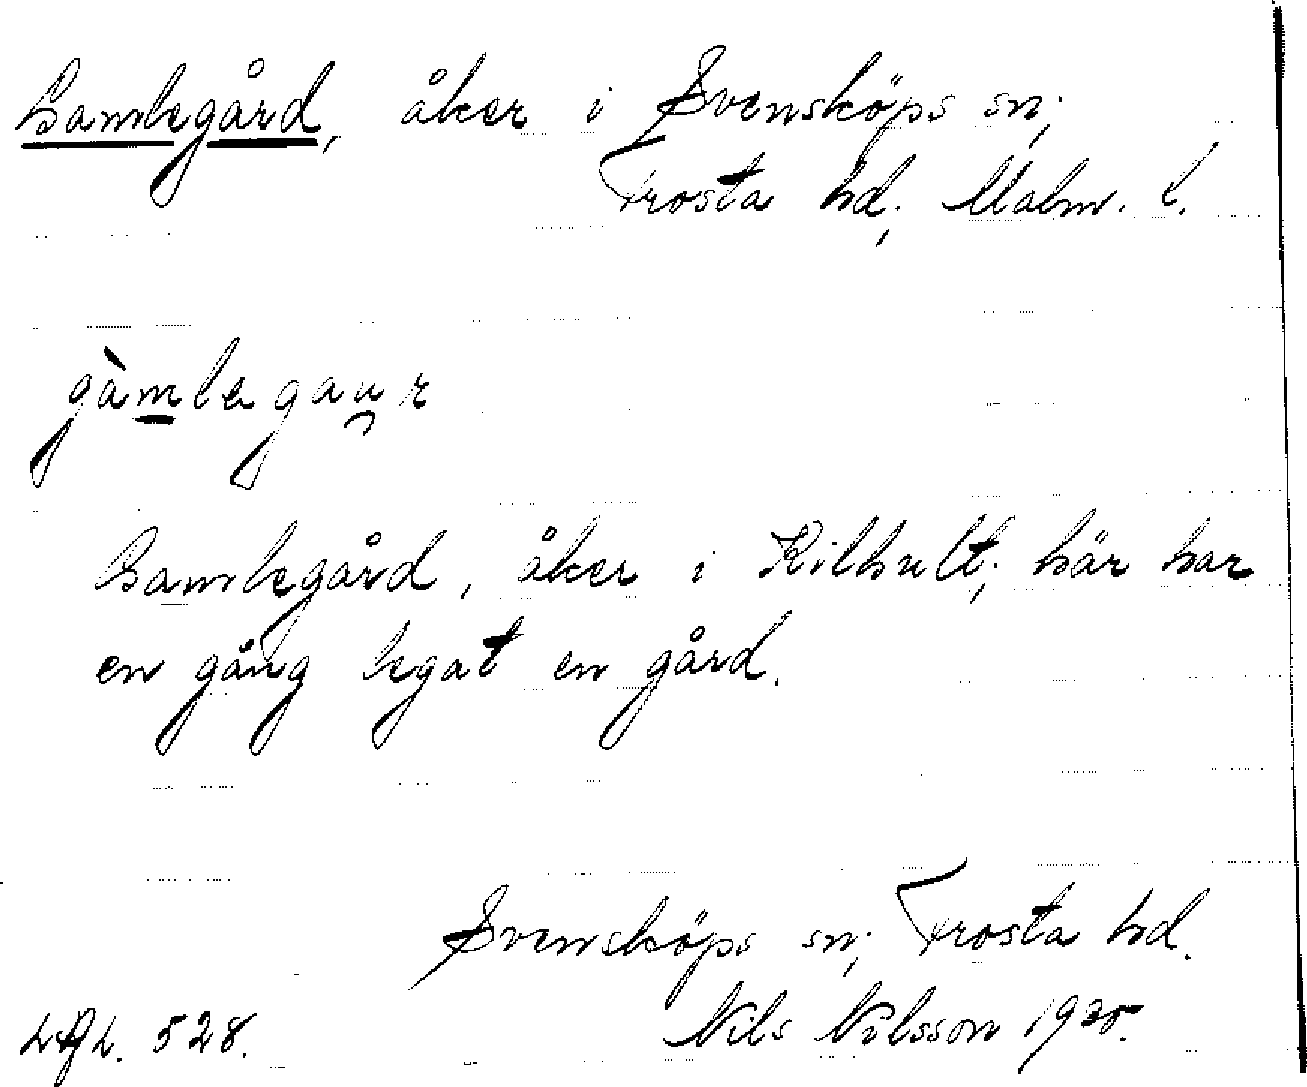 Gamlegård, åker i Svensköps sn;
Frosta hd, Malm. l.
gàmlegaur
Gamlegård, åker i Kilhult; här har
en gång legat en gård.
Svensköps sn; Frosta hd.
528. Nils Nilsson